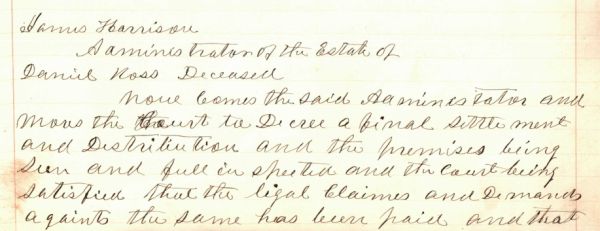 James Harrison
Administrator of the Estate of
Daniel Ross Deceased
Nove Comes the said Administator and
Moves the Court to Decree a final Settlement
and Distribution and the premises being
Seen and full in spected and the Court being
satisfied that the ligal Claimes and Demands
againts the same has been paid and that